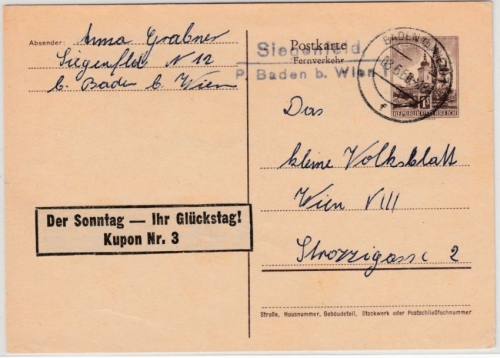 Absender: Anna Grabner
Siegenfeld N 12
b. Baden b. Wien
Siegenfeld
P. Baden b. Wien
Postkarte
Fernverkehr
BADEN B. WIEN
REPUBLIK ÖSTERREICH
Das
kleine Volksblatt
Wien VIII
Strozzigasse 2
Der Sonntag — Ihr Glückstag!
Kupon Nr. 3
Straße, Hausnummer, Gebäudeteil, Stockwerk oder Postschließfachnummer